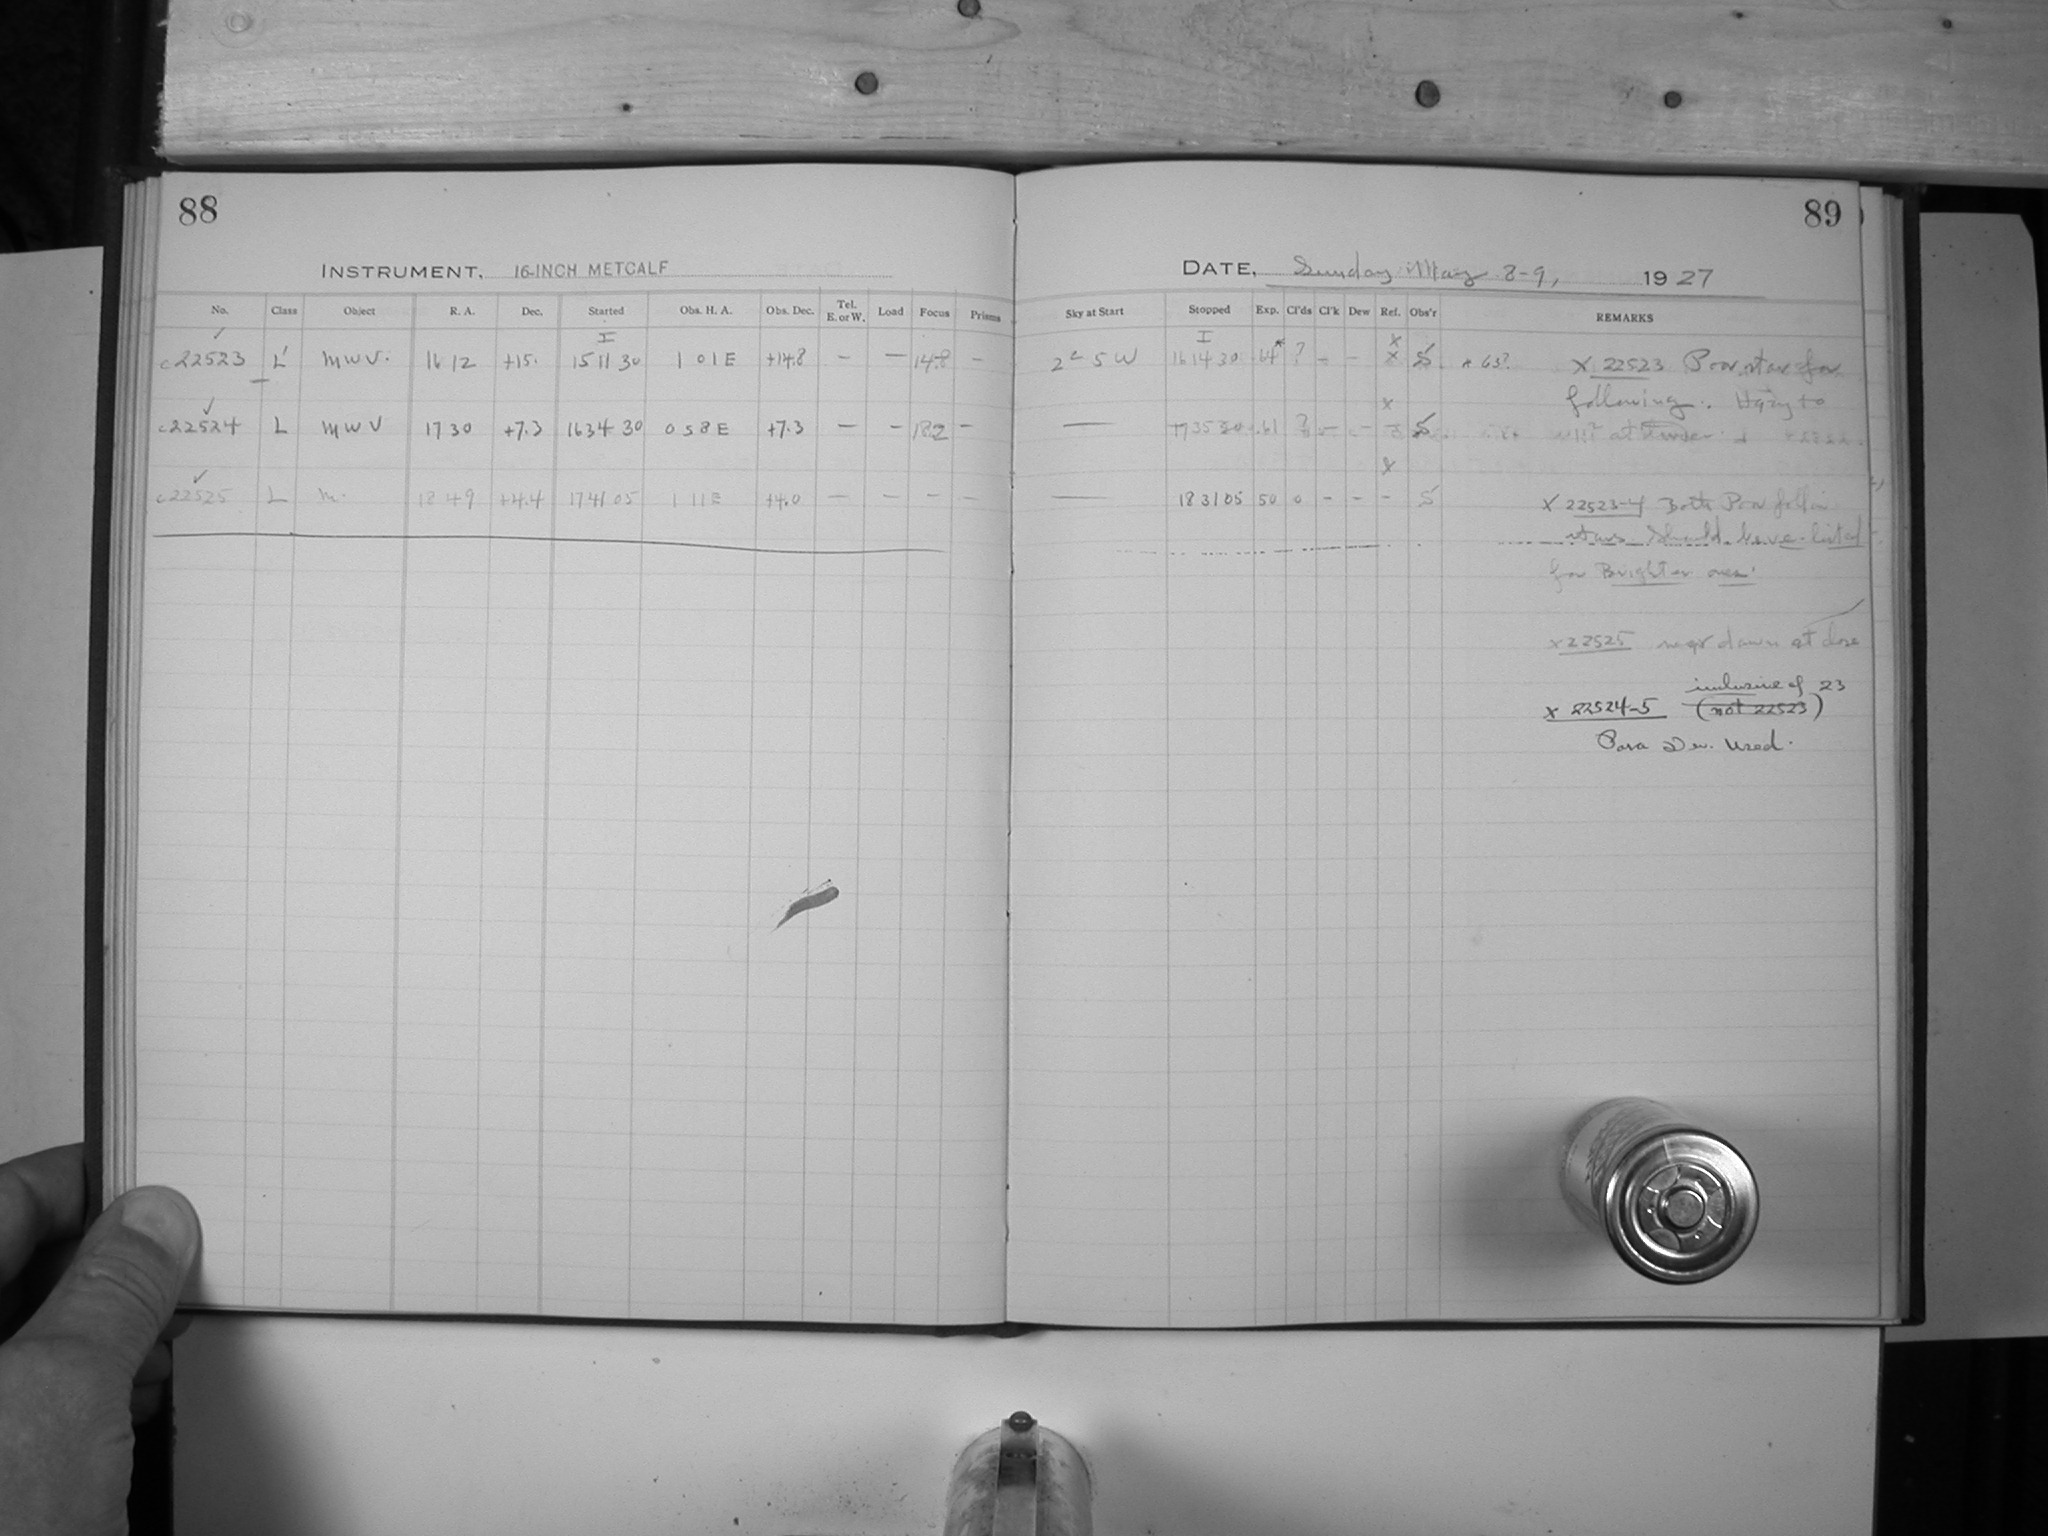 88
INSTRUMENT, 16-INCH METCALF
No. Class Object R. A. Dec. Started Obs. H. A. Obs. Dec. Tel. E. or W. Load Focus Prisms
I
c22523 L MWV. 16 12 +15. 15 11 30 1 01 E +14.8 – – 14.8 –
c22524 L MWV 17 30 +7.3 16 34 30 0 58 E +7.3 – – 18.2 –
c22525 L M. 18 49 +4.4 17 41 05 1 11 E +4.0 – – – –
89
DATE, Sunday May 8-9, 1927
Sky at Start Stopped Exp. Cl'ds Cl'k Dew Ref. Obs'r REMARKS
I x
5 W 16 14 30 64* ? – – x S * 63? x 22523 Poor star for
x following. Hazy to
— 17 35 61 ? – – S at
x
— 18 31 05 50 0 – – – S x 22523-4 Both Poor
stars Should have listed
for Brighter ones.
x 22525 near dawn at close
inclusive of 23
x 22524-5 (not 22523)
Para Dev. Used.